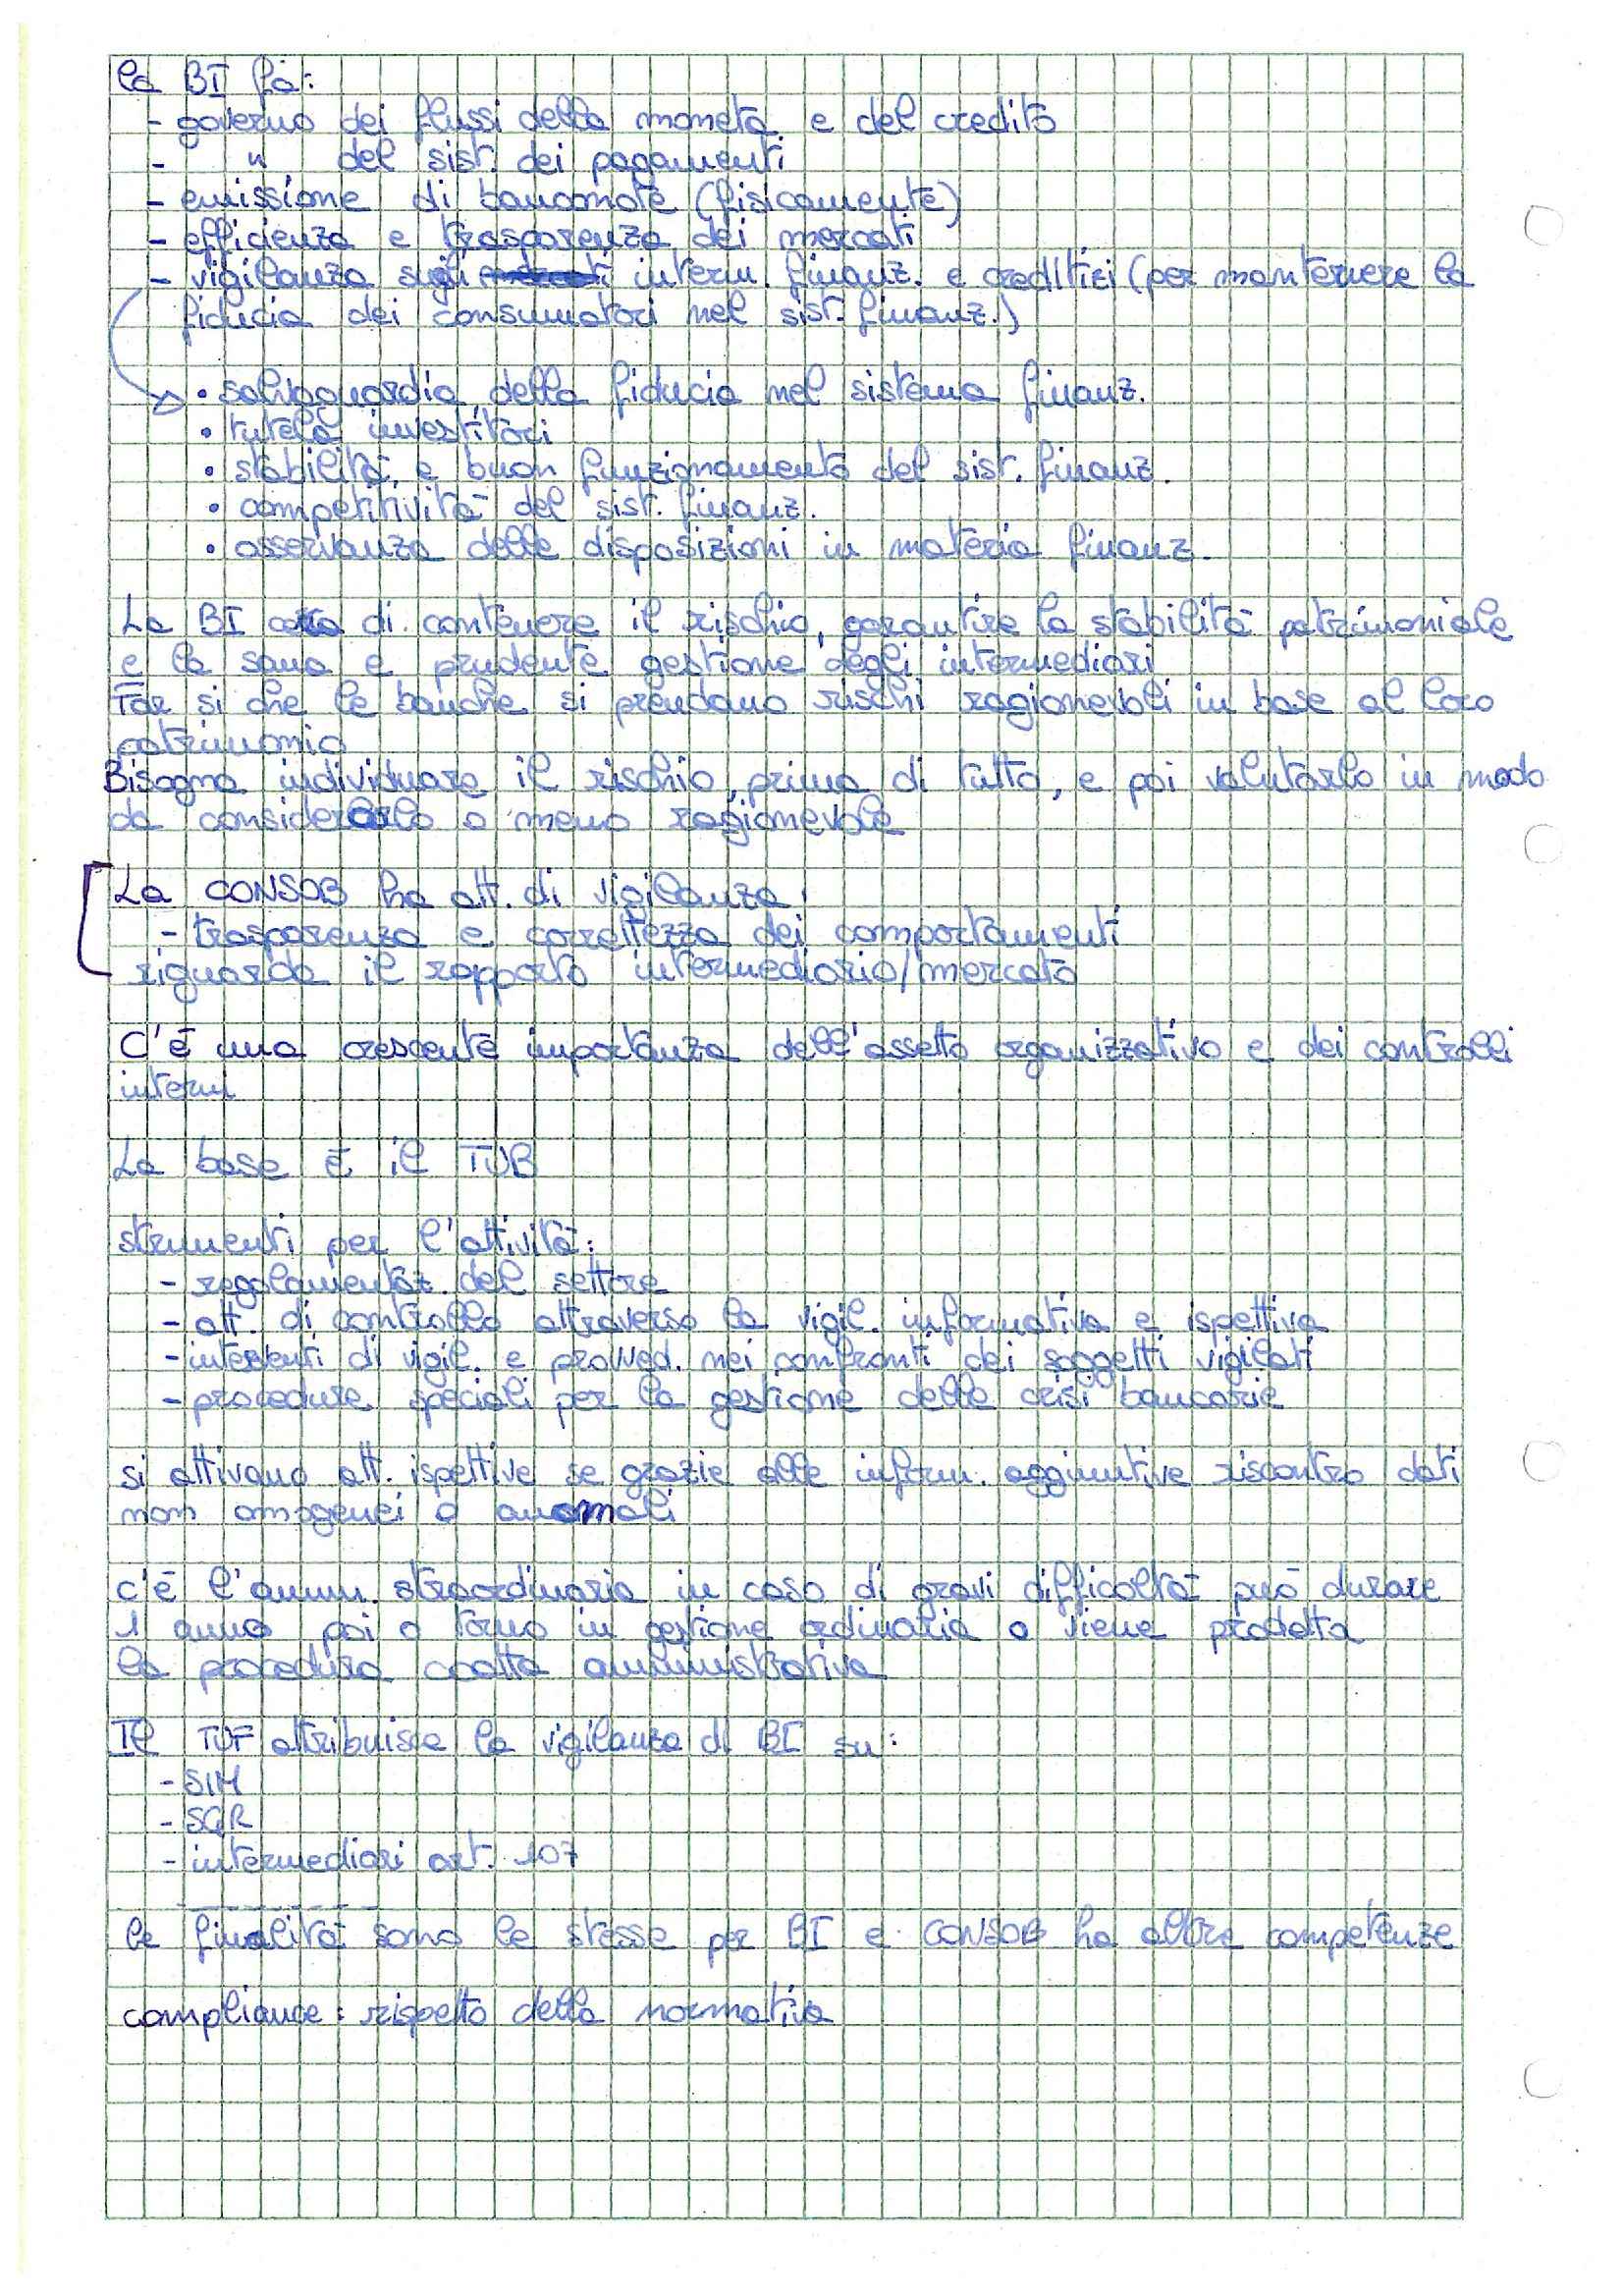 la BI fa:
- governo dei flussi della moneta e del credito
- " del sist. dei pagamenti
- emissione di banconote (fisicamente)
- efficienza e trasparenza dei mercati
- vigilanza sugli interm. finanz. e creditizi (per mantenere la
fiducia dei consumatori nel sist. finanz.)
• salvaguardia della fiducia nel sistema finanz.
• tutela investitori
• stabilità e buon funzionamento del sist. finanz.
• competitività del sist. finanz.
• osservanza delle disposizioni in materia finanz.
La BI cerca di contenere il rischio, garantire la stabilità patrimoniale
e la sana e prudente gestione degli intermediari
Far si che le banche si prendano rischi ragionevoli in base al loro
patrimonio
Bisogna individuare il rischio, prima di tutto, e poi valutarlo in modo
da considerarlo o meno ragionevole
La CONSOB ha att. di vigilanza:
- trasparenza e correttezza dei comportamenti
riguarda il rapporto intermediario/mercato
C'è una crescente importanza dell'assetto organizzativo e dei controlli
interni
La base è il TUB
strumenti per l'attività:
- regolamentaz. del settore
- att. di controllo attraverso la vigil. informativa e ispettiva
- interventi di vigil. e provved. nei confronti dei soggetti vigilati
- procedure speciali per la gestione delle crisi bancarie
si attivano att. ispettive se grazie alle inform. aggiuntive riscontro dati
non omogenei o anomali
c'è l'ammin. straordinaria in caso di gravi difficoltà può durare
1 anno poi o torno in gestione ordinaria o viene prodotta
la procedura coatta amministrativa
Il TUF attribuisce la vigilanza di BI su:
- SIM
- SGR
- intermediari art. 107
le finalità sono le stesse per BI e CONSOB ha altre competenze
compliance: rispetto della normativa